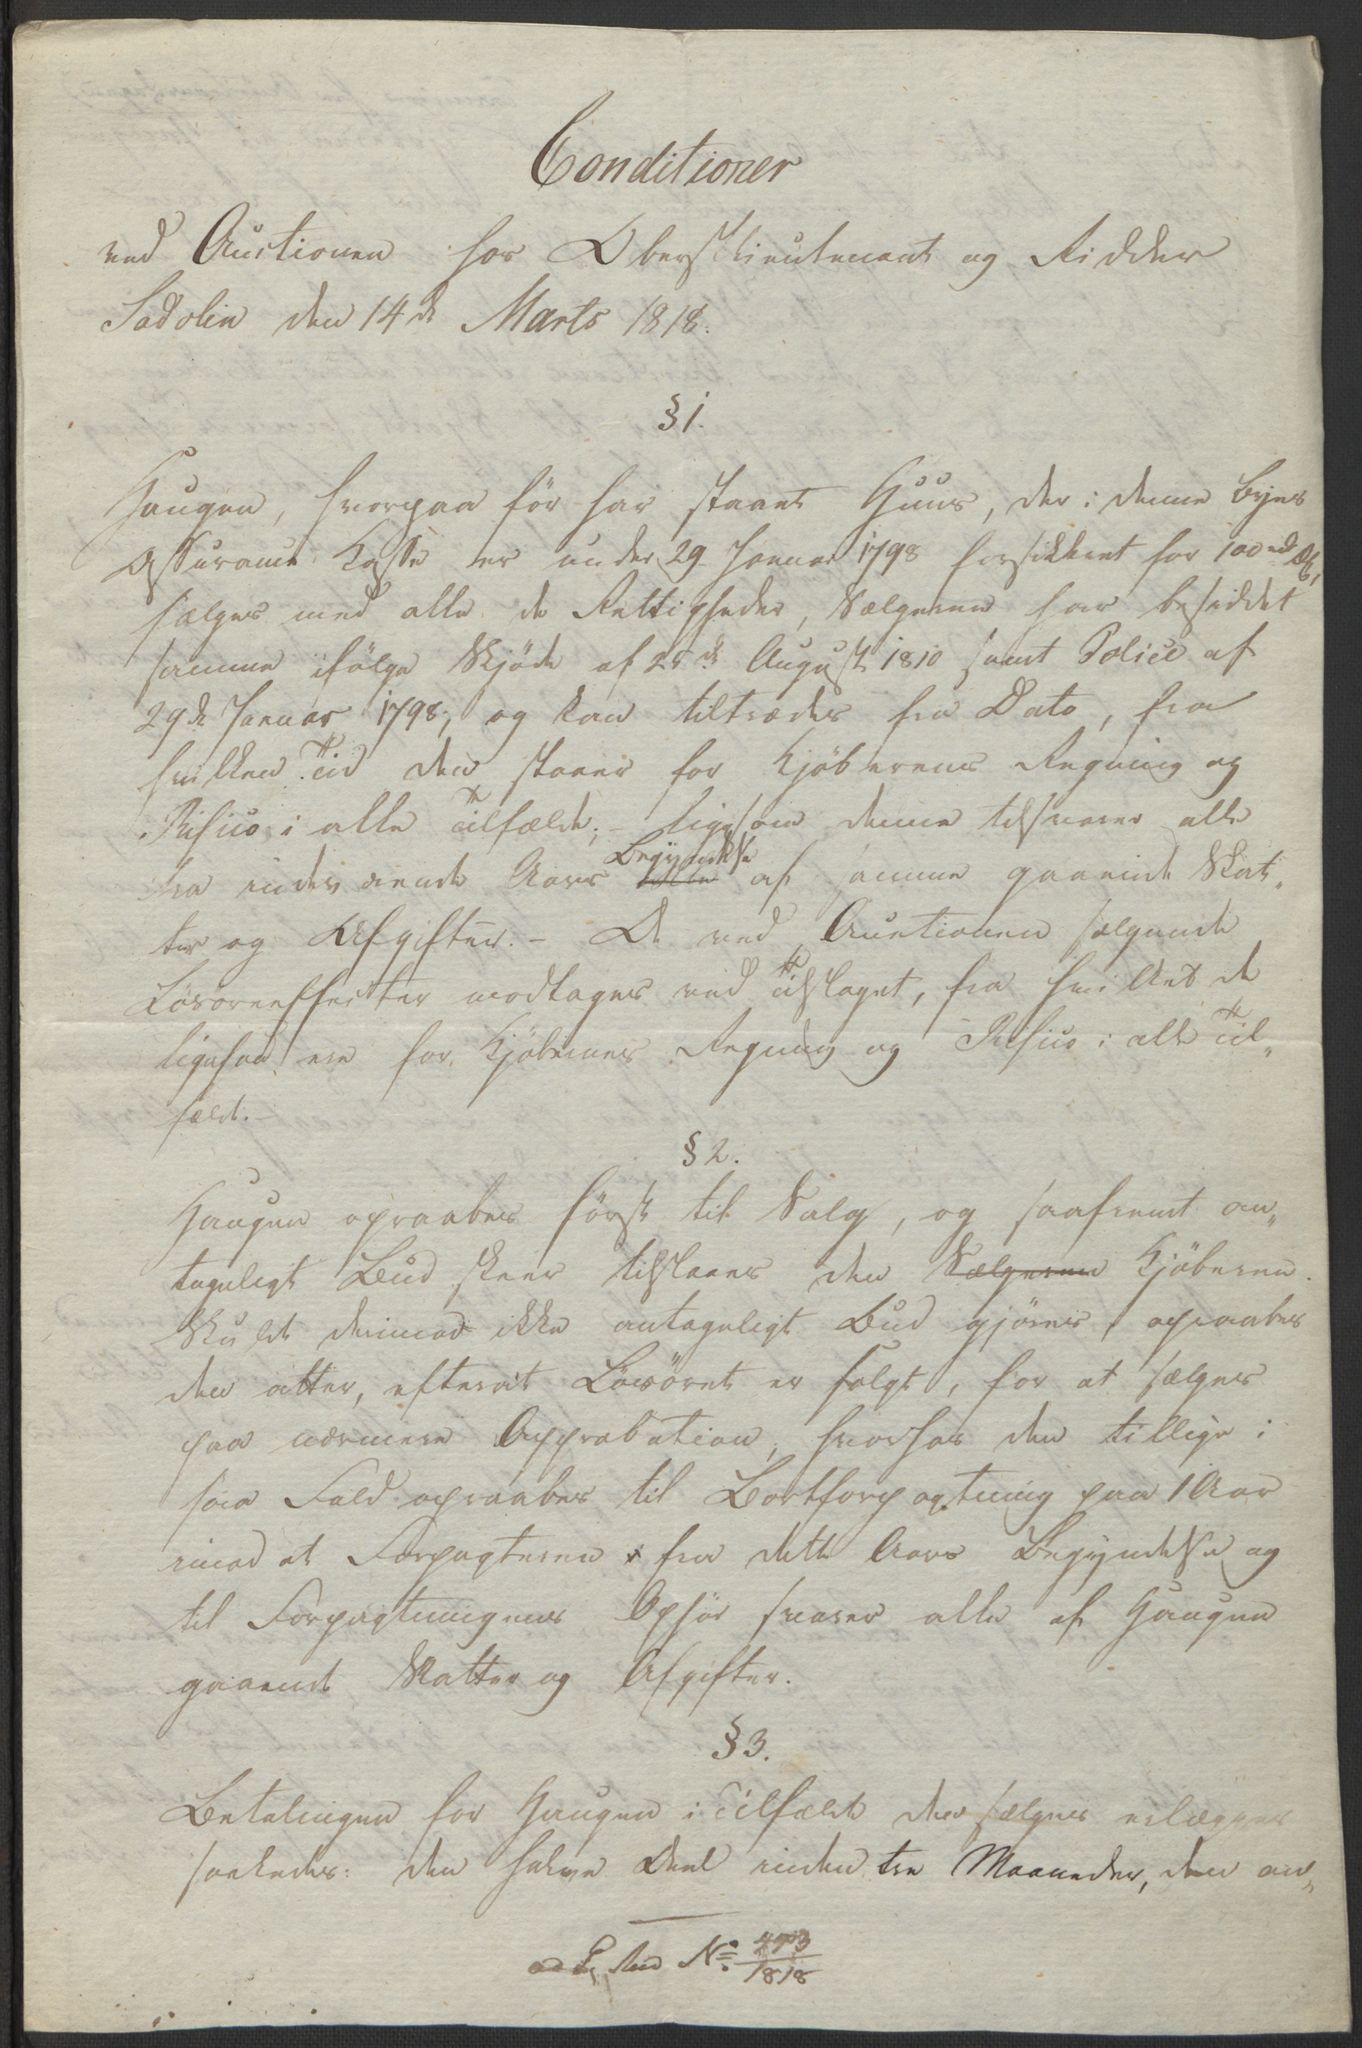 Conditioner
ved Auctionen hos Oberstlieutenant og Ridder
Sadolin den 14de Marts 1818.
§ 1.
Haugen, hvorpaa för har staaet Huus, der i denne Byes
Assurance Kasse er under 29 Januar 1798 forsikkret for 100 rd
sælges med alle de Rettigheder, Sælgeren har besiddet
samme ifölge Skjöde af 25de August 1810 samt Police af
29de Januar 1798, og kan tiltrædes fra Dato, fra
hvilken Tid den staaer for Kjöberens Regning og
Risico i alle Tilfælde; - ligesom denne tilsvarer alle
fra indeværende Aars Begyndelse af samme gaaende Skat„
ter og Afgifter. - De ved Auctionen sælgende
Lösöreeffecter modtages ved Tilslaget, fra hvilket de
ligesaa ere for Kjöbernes Regning og Risico i alle Til„
fælde. -
§ 2.
Haugen opraabes först til Salg, og saafremt an„
tageligt Bud skeer tilslaaes den Sælgeren Kjöberen.
Skulde derimod ikke antageligt Bud gjöres, opraabes
den atter, efterat Lösöret er solgt, for at sælges
paa nærmere Approbation, hvorhos den tillige i
saa Fald opraabes til Bortforpagtning paa 1 Aar
imod at Forpagteren fra dette Aars Begyndelse og
til Forpagtningens Ophör svarer alle af Haugen
gaaende Skatter og Afgifter.
§ 3.
Betalingen for Haugen i Tilfælde den sælges erlægges
saaledes: den halve Deel inden tre Maaneder, den an„
ad No. 493/1818